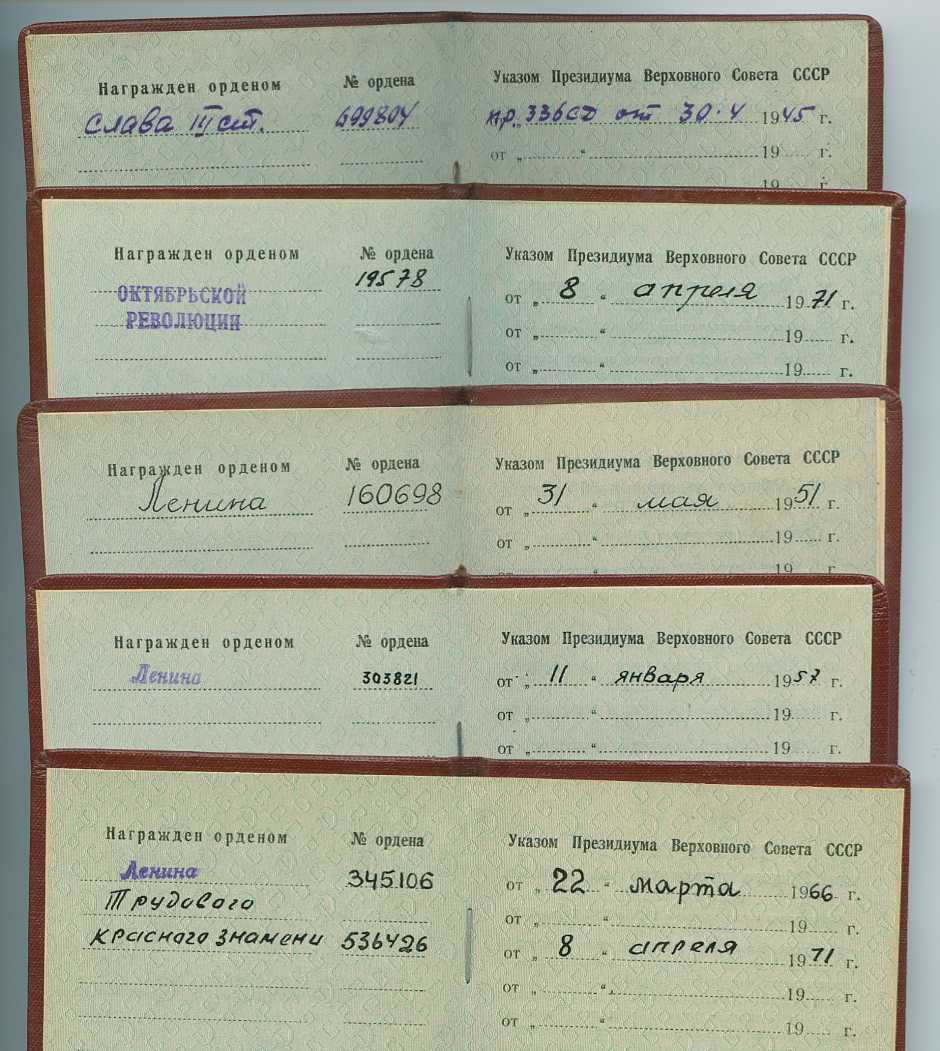 Награжден орденом № ордена Указом Президиума Верховного Совета СССР
Слава III ст. 699804 пр. 336СД от 30.4 1945 г.
от „ “ 19 г.
19 г.
Награжден орденом № ордена Указом Президиума Верховного Совета СССР
ОКТЯБРЬСКОЙ 19578 от „ 8 “ апреля 1971 г.
РЕВОЛЮЦИИ от „ “ 19 г.
от „ “ 19 г.
Награжден орденом № ордена Указом Президиума Верховного Совета СССР
Ленина 160698 от „ 31 “ мая 1951 г.
от „ “ 19 г.
от „ “ 19 г.
Награжден орденом № ордена Указом Президиума Верховного Совета СССР
Ленина 303821 от „ 11 “ января 1957 г.
от „ “ 19 г.
от „ “ 19 г.
Награжден орденом № ордена Указом Президиума Верховного Совета СССР
Ленина 345106 от „ 22 “ марта 1966 г.
Трудового от „ “ 19 г.
Красного Знамени 536426 от „ 8 “ апреля 1971 г.
от „ “ 19 г.
от „ “ 19 г.